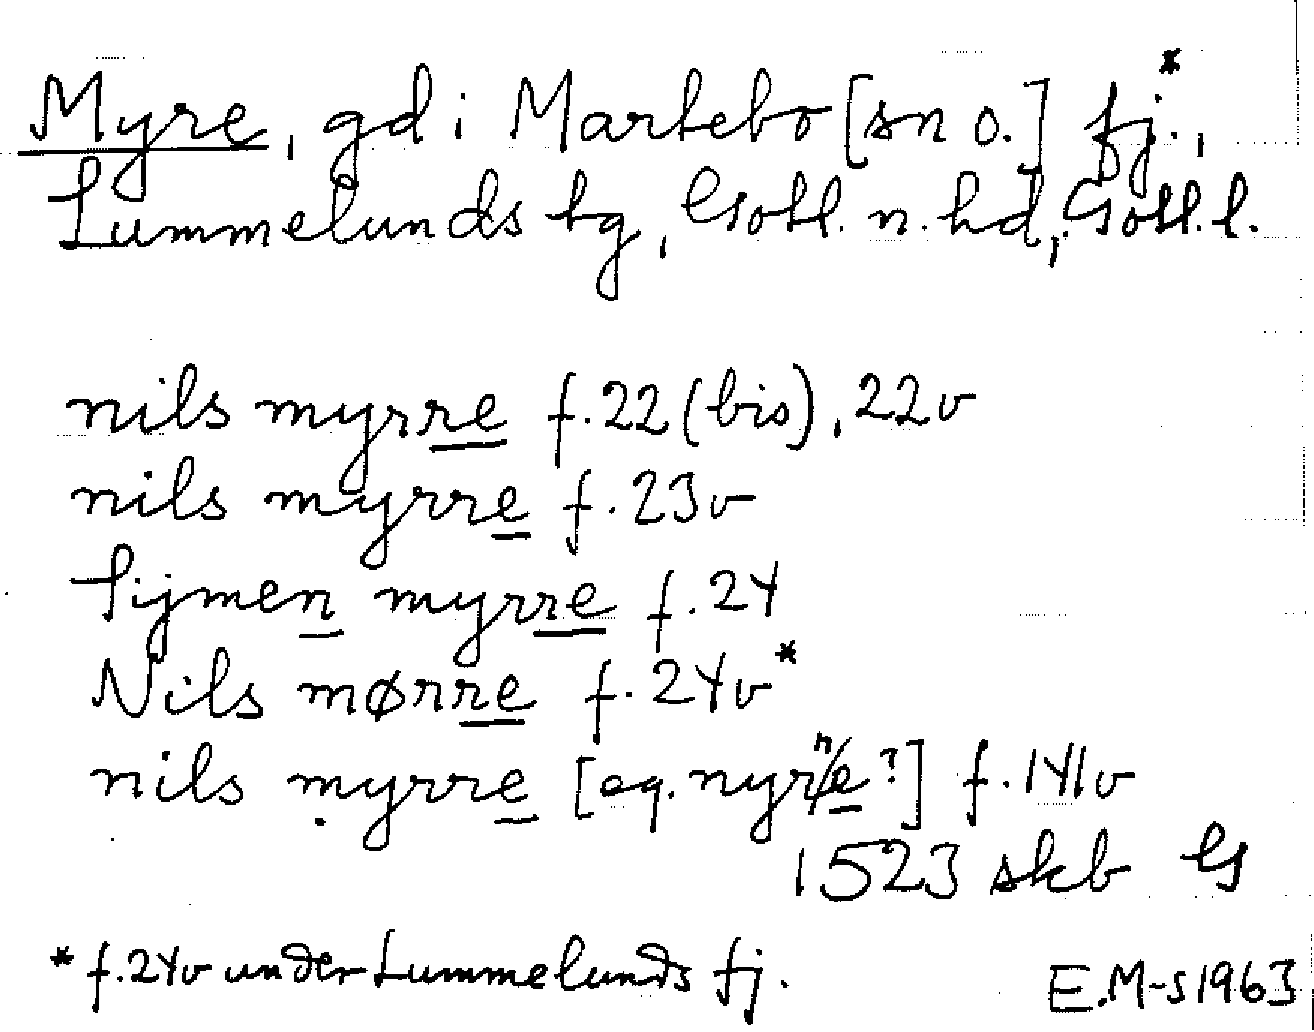 Myre, gd i Martebo [sn o.] fj.*,
Lummelunds tg, Gotl. n. hd, Gotl. l.
nils myrre f. 22 (bis), 22v
nils myrre f. 23v
Sijmen myrre f. 24
Nils mørre f. 24v*
nils myrre [eg. nyrre?] f. 141v
1523 skb G
* f. 24v under Lummelunds fj.
E.M-s 1963